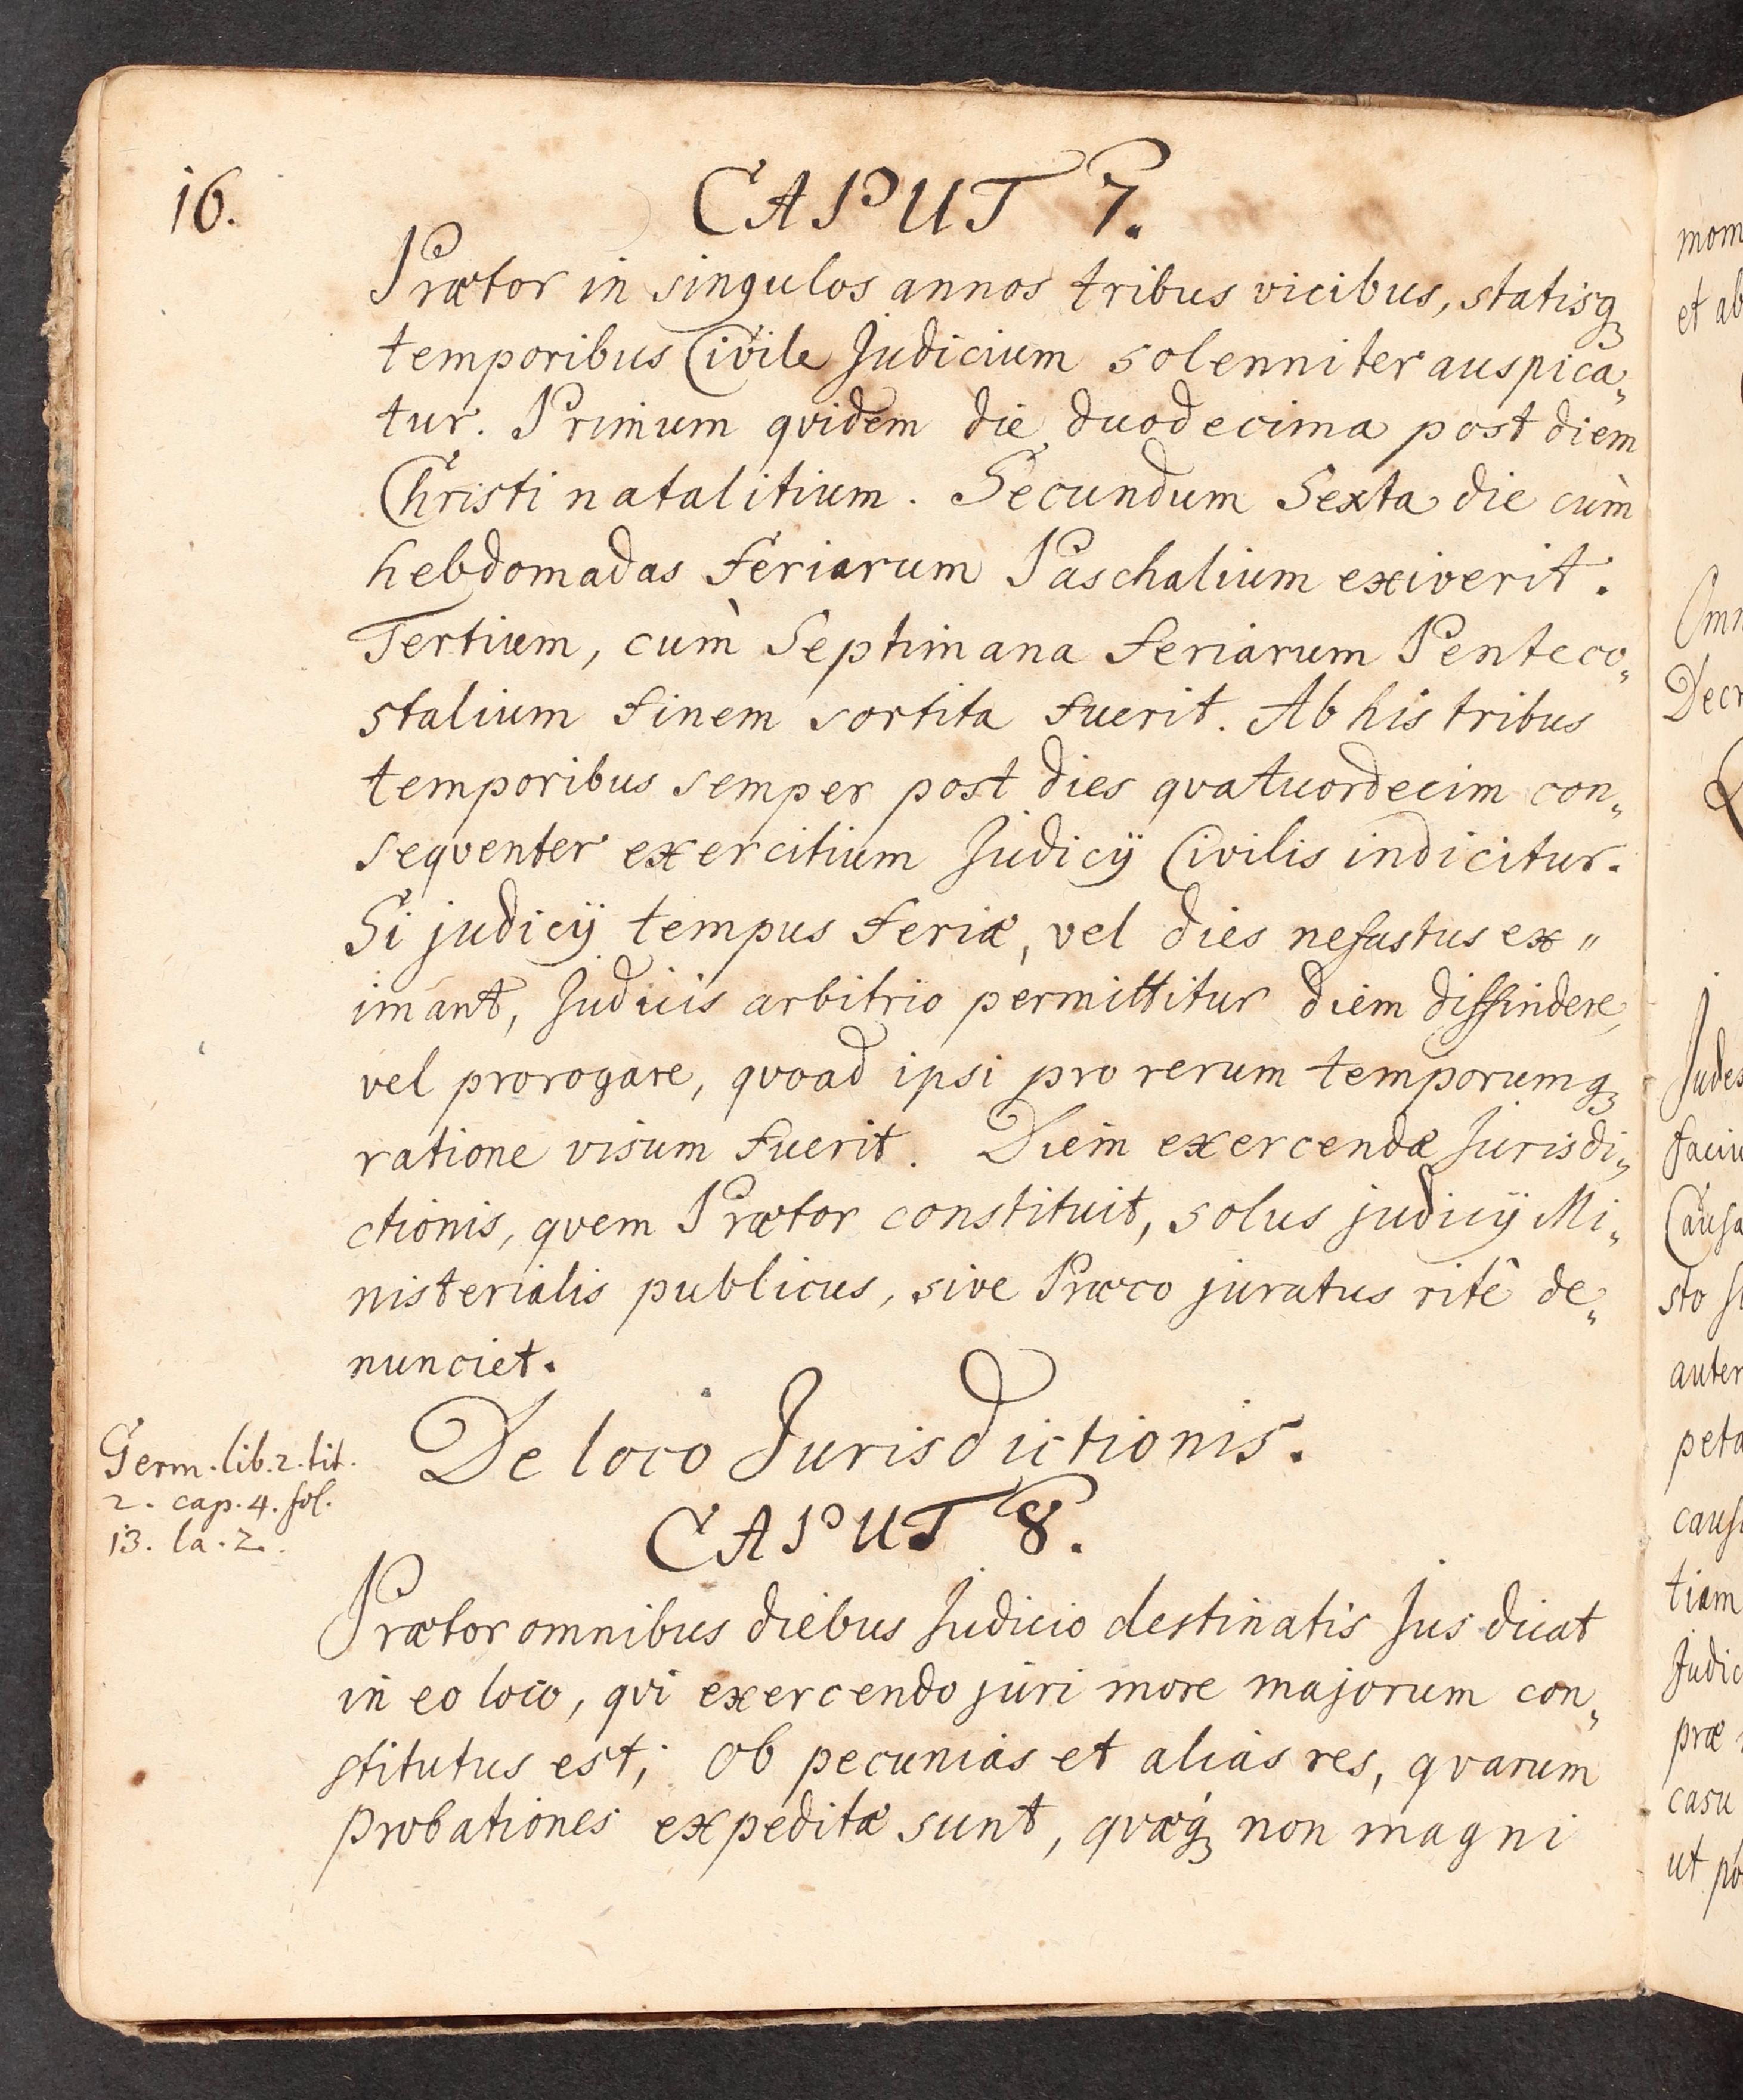 16.
CAPUT 7.
Prætor in singulos annos tribus vicibus, statisq;
temporibus Civile Judicium solenniter auspica„
tur. Primum qvidem die duodecima post diem
Christi natalitium. Secundum Sexta die cùm
hebdomadas feriarum Paschalium exiverit.
Tertium, cùm Septimana feriarum Penteco„
stalium finem sortita fuerit. Ab his tribus
temporibus semper post dies qvatuordecim con„
seqventer exercitium Judicÿ Civilis indicitur.
Si judicÿ tempus feriæ, vel dies nefastus ex„
imant, Judicis arbitrio permittitur diem diffindere,
vel prorogare, qvoad ipsi pro rerum temporumq;
ratione visum fuerit. Diem exercendæ Jurisdi„
ctionis, qvem Prætor constituit, solus judicÿ Mi„
nisterialis publicus, sive Præco juratus ritê de„
nunciet.
De loco Jurisdictionis.
Germ. lib. 2. tit.
2. cap. 4. fol.
13. la. 2.
CAPUT 8.
Prætor omnibus diebus Judicio destinatis Jus dicat
in eo loco, qvi exercendo juri more majorum con„
stitutus est; Ob pecunias et alias res, qvarum
probationes expeditæ sunt, qvæq; non magni
mom
et ab
Omn
Decr
Judex
faciu
Causa
sto
auten
peta
caus
tiam
Judic
præ
casu
ut po